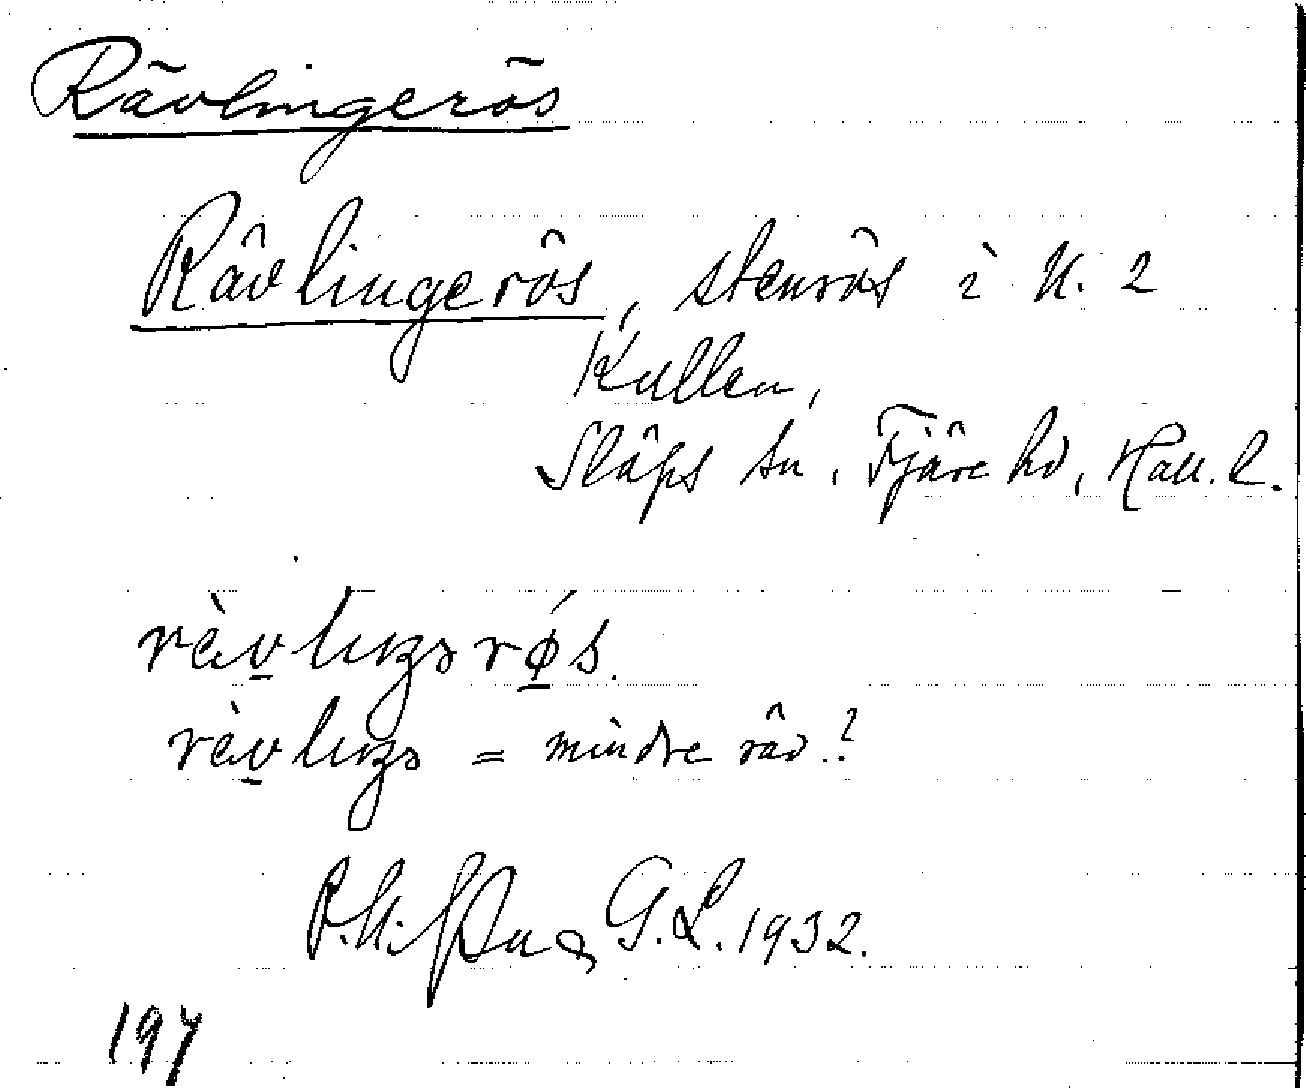 Rävlingerös
Rävlingerös, stenrös i N. 2
Kullen,
Släps sn, Fjäre hd, Hall. l.
rävlingərøs.
rävlingə = mindre räv?
G.L. 1932.
197